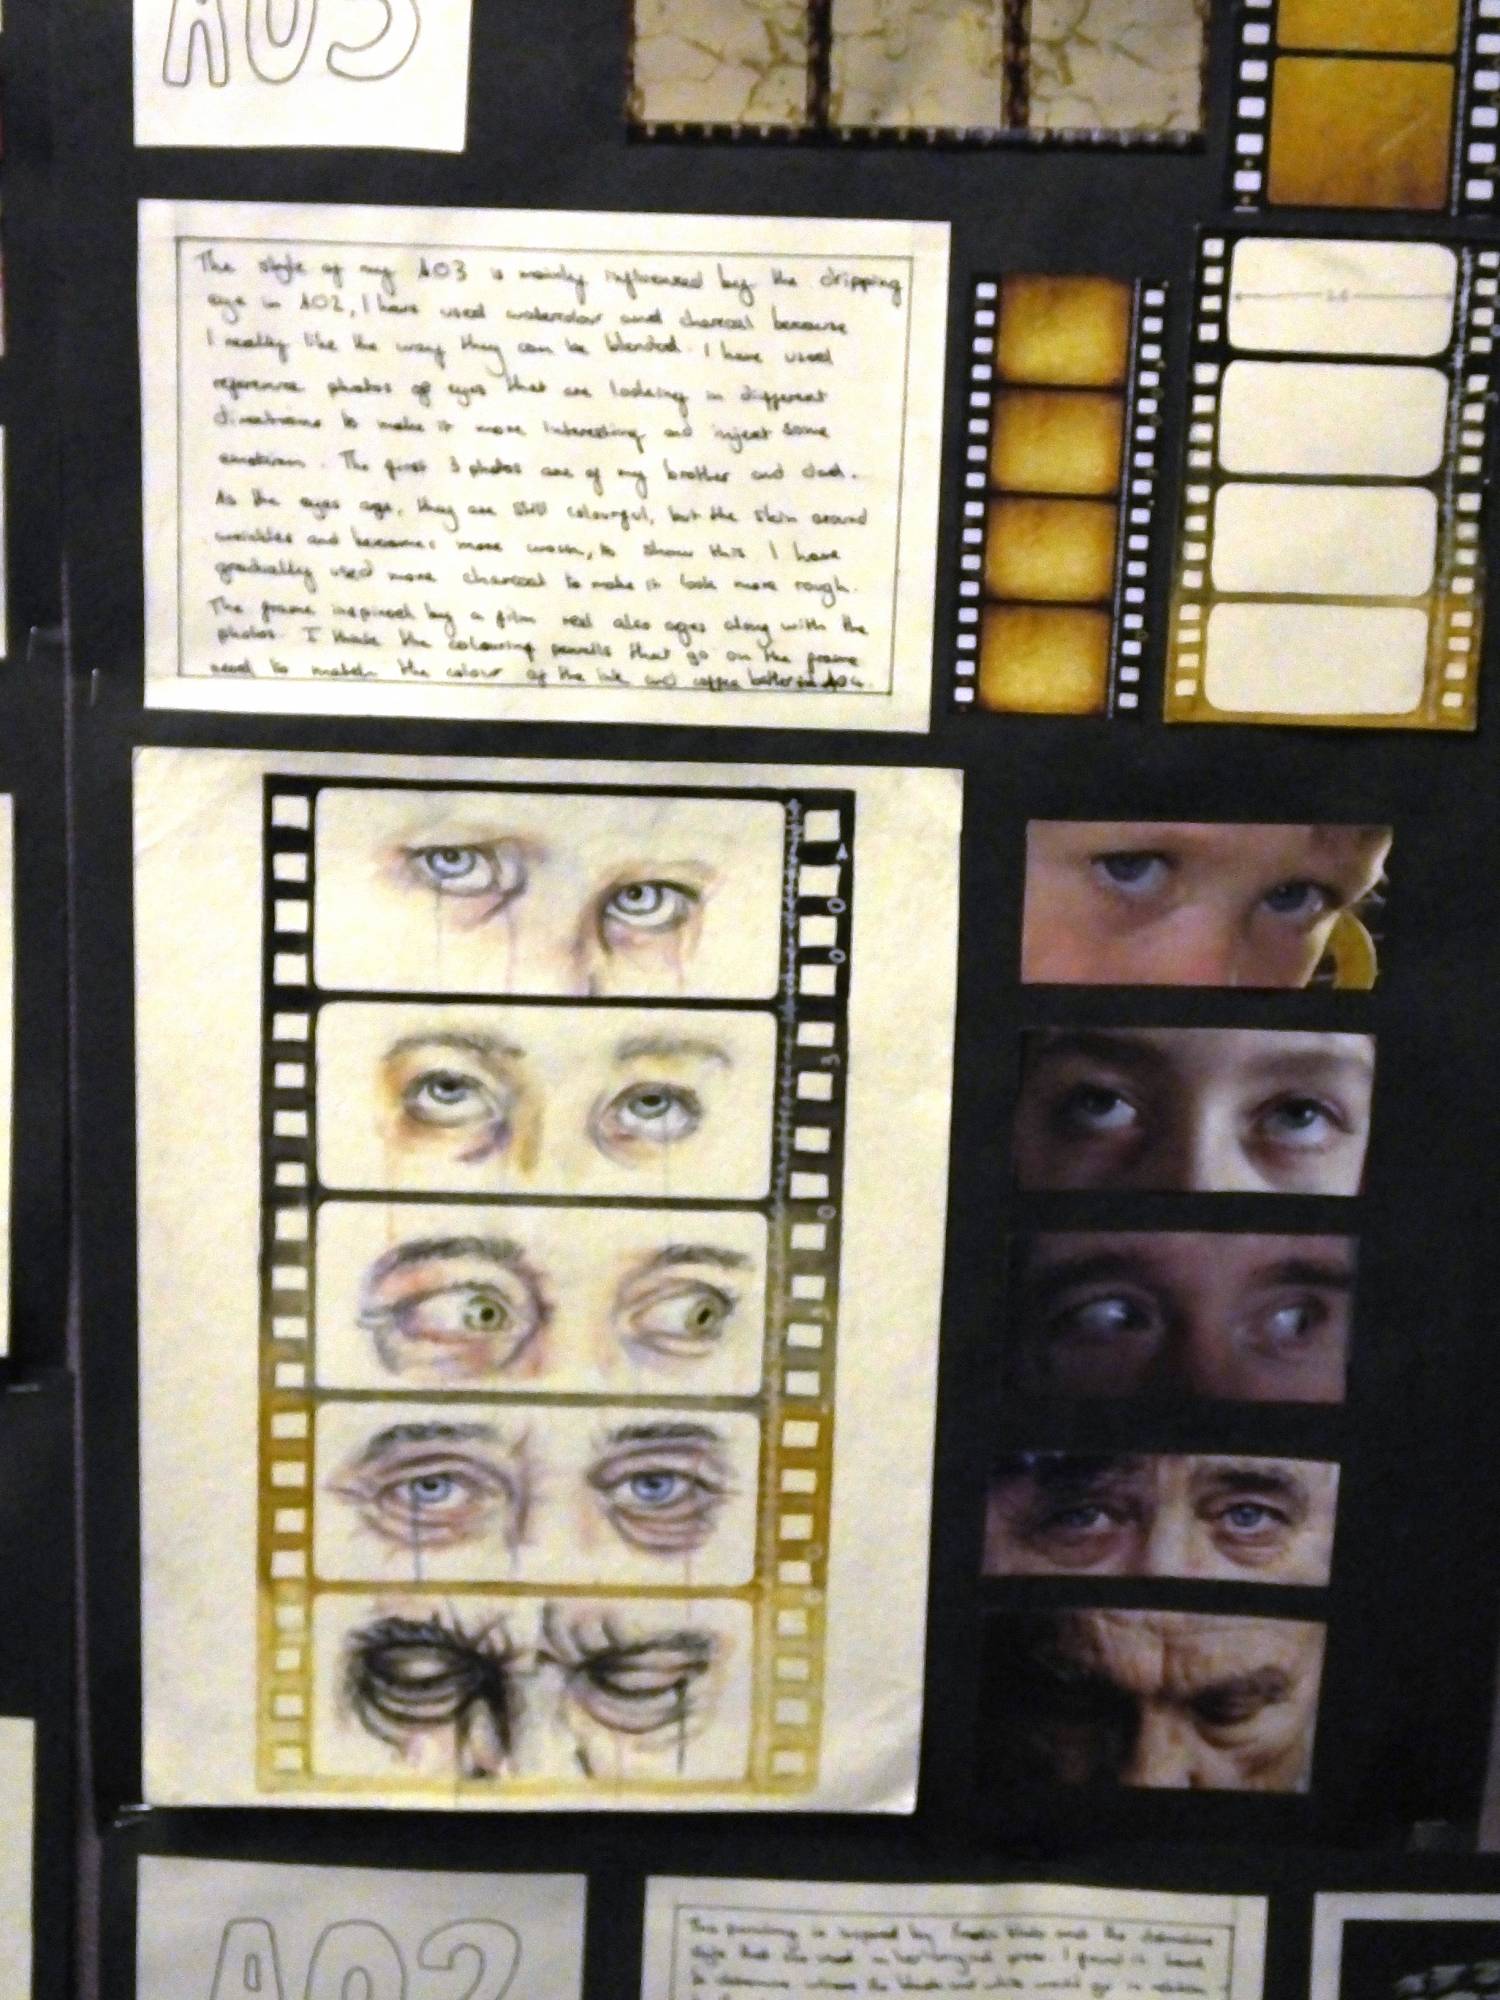 AO3
The style of my AO3 is mainly influenced by the dripping
eye in AO2, I have used watercolour and charcoal because
I really like the way they can be blended. I have used
reference photos of eyes that are looking in different
directions to make it more interesting and inject some
emotion. The first 3 photos are of my brother and dad.
As the eyes age, they are still colourful, but the skin around
wrinkles and becomes more worn, to show this I have
gradually used more charcoal to make it look more rough.
The frame inspired by a film reel also ages along with the
photos. I think the colouring pencils that go on the frame
need to match the colour of the ink and coffee better in AO4.
AO2
This painting is inspired by and the
style that she used in. I found it hard
to determine where the black and white would go in relation